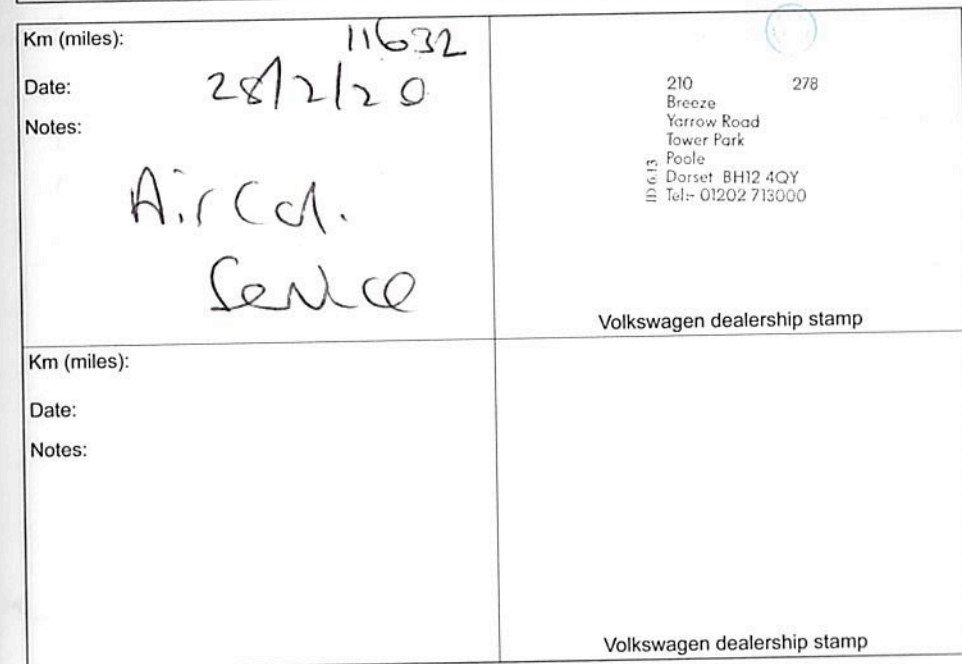 Km (miles): 11632
Date: 28/2/20
Notes:
Air Cd.
Service
210 278
Breeze
Yarrow Road
Tower Park
Poole
Dorset BH12 4QY
Tel:- 01202 713000
Volkswagen dealership stamp
Km (miles):
Date:
Notes:
Volkswagen dealership stamp